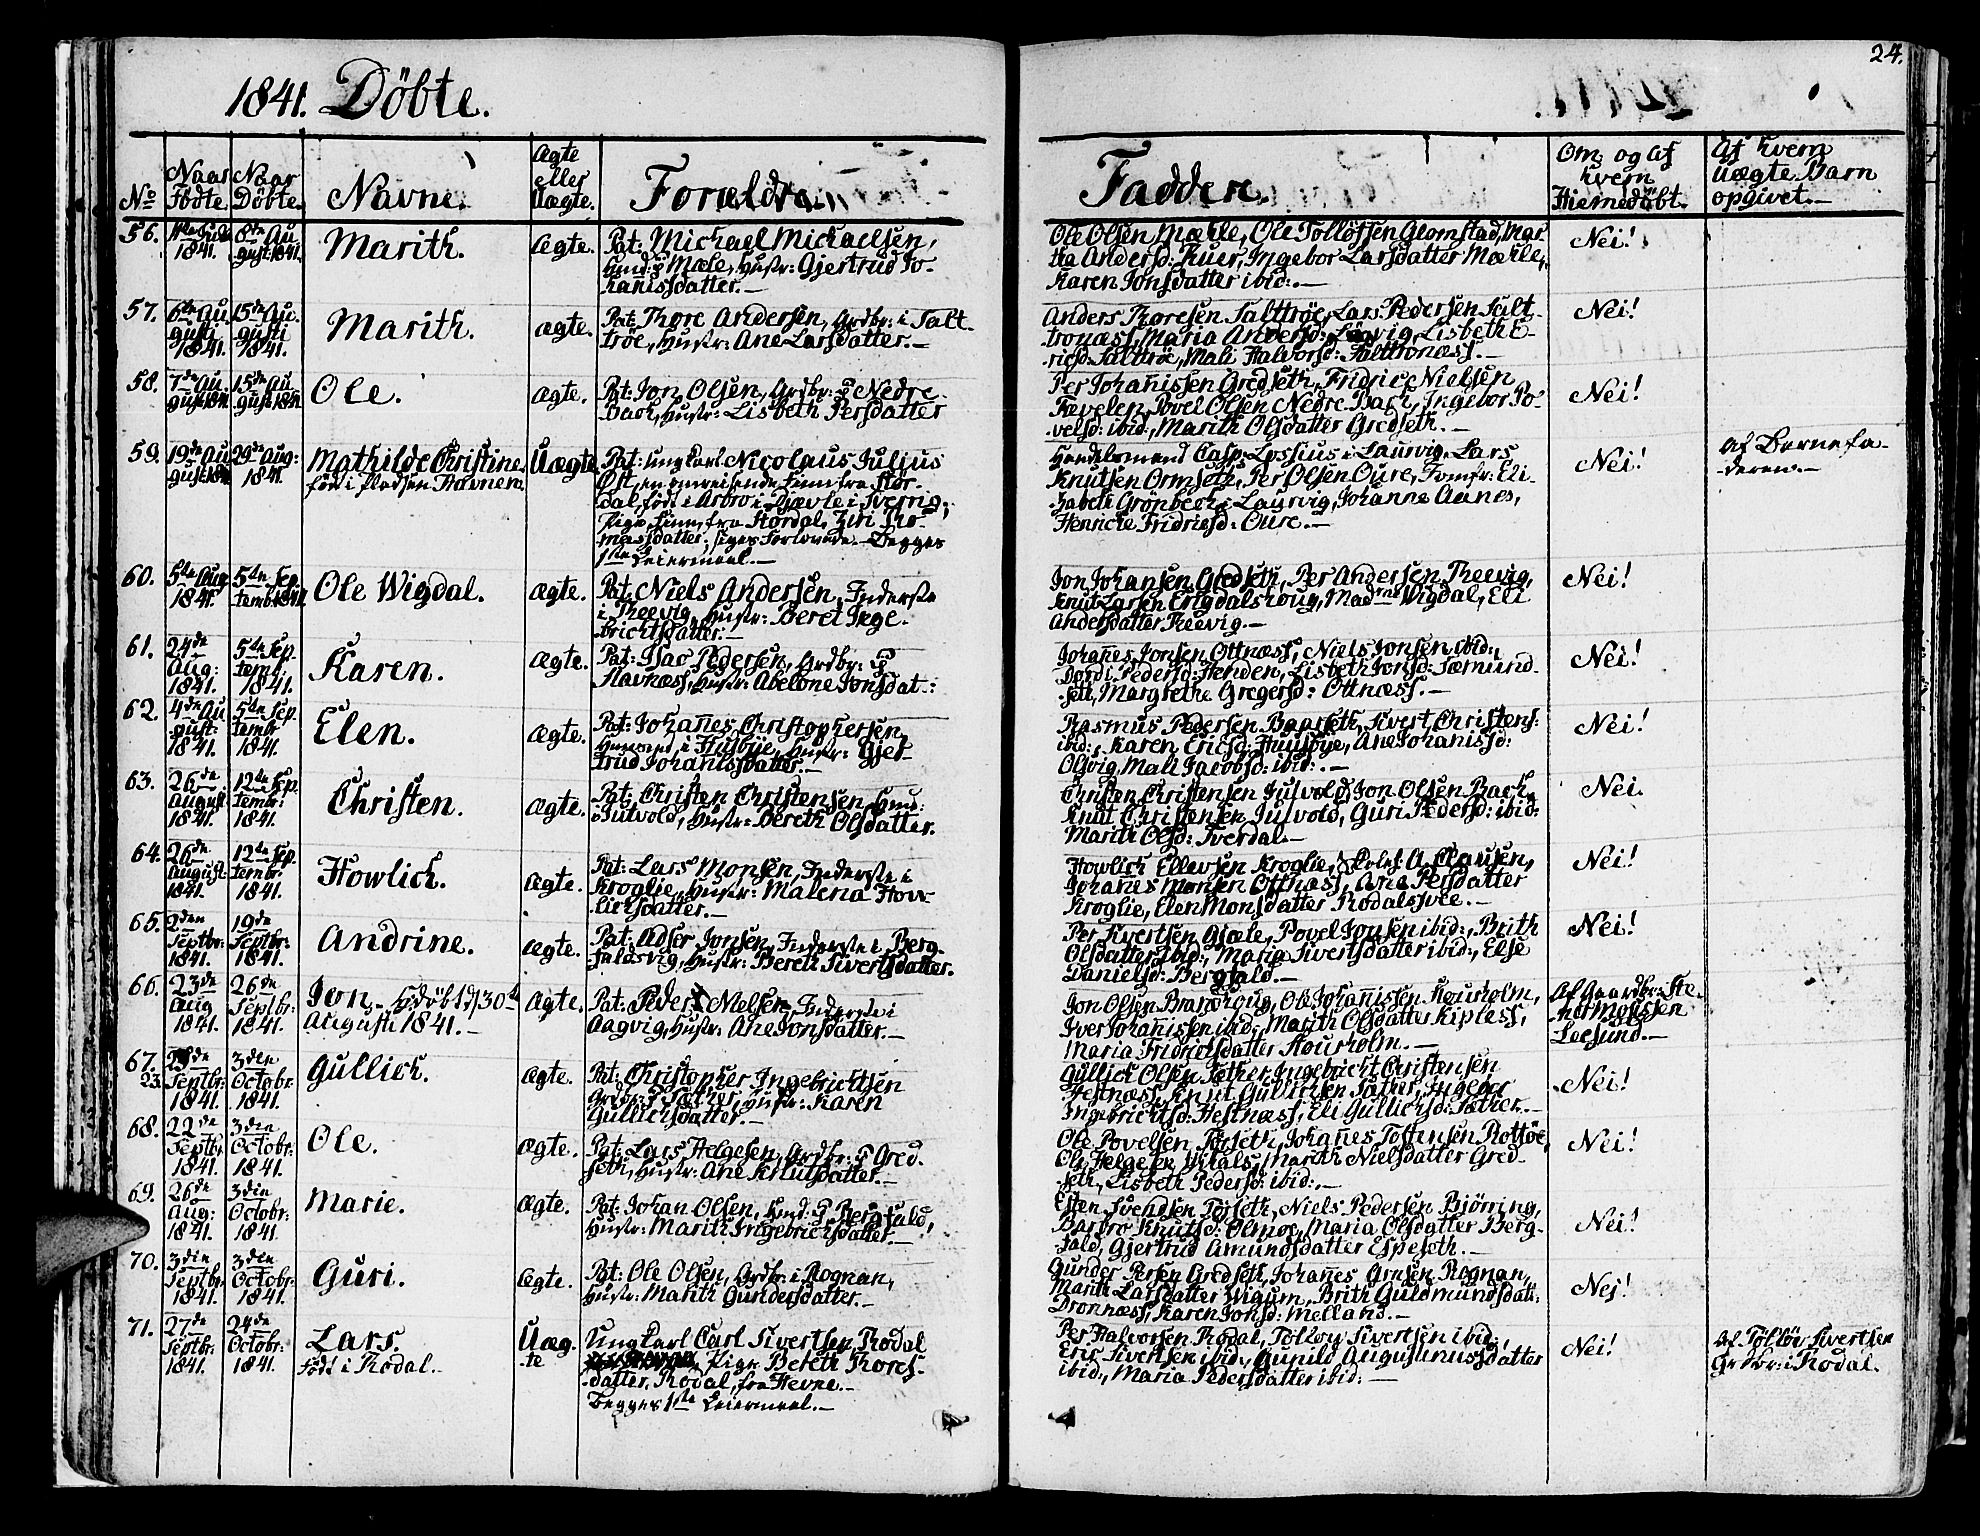 24.
1841. Döbte.
No
Naar Födte.
Naar Döbte.
Navne.
Ægte eller Uægte.
Forældre.
Faddere.
Om, og af hvem Hiemedöbt.
Af hvem Uægte Barn opgivet.
56.
1841.
8de August 1841.
Marith.
Ægte.
Pat: Michael Michaelsen,
Huusmd: Mæle, Hustr: Gjertrud Jo-
hanisdatter.
Ole Olsen Mæhle, Ole Tollöfsen Glomstad, Mar-
tha Andersd: Ruer, Ingebor Larsdatter Mæhle,
Karen Jonsdatter ibid:
Nei!
57.
6te Augusti 1841.
15de Augusti 1841.
Marith.
Ægte.
Pat: Thore Andersen, Grdbr: i Salt-
tröe, Hustr: Ane Larsdatter.
Anders Thoresen Salttröe, Lars Pedersen Salt-
tronæss, Maria Andersd: Löevig, Lisbeth E-
ricsd: Salttröe, Mali Halvorsd: Salttronæss.
Nei!
58.
7de August 1841
15de August 1841
Ole.
Ægte.
Pat: Jon Olsen, Grdbr: Nedre-
Bach, Hustr: Lisbeth Persdatter
Per Johanissen Gredseth, Fridric Nielsen
Tævelen, Povel Olsen Nedre Bach, Ingebor Po-
velsd: ibid:, Marith Olsdatter Gredseth.
Nei!
59.
19de August 1841
29de Aug: 1841.
Mathilde Christine.
föd i Pladsen Stavnem
Uægte
Pat: Ungkarl Nicolaus Julius
Öst, en omreisende Finn fra Stor-
dal, födt i Arbro i Gjævle i Sverrig,
Pige, Finn, fra Stordal, Ziri Tho-
massdatter. siges Forlovede. Begges
1ste Leiermaal.
Handelsmand Casp. Lossius i Laurvig, Lars
Knutsen Ormseth, Per Olsen Oure, Jomfr: Eli-
sabeth Grönbech i Laurvig, Johanne Aanes,
Henricke Fridricsd: Oure.
Nei!
af Barnefa-
deren.
60.
5te Aug 1841.
5te Septemb: 1841.
Ole Wigdal.
Ægte.
Pat: Niels Andersen, Inderste
i Theevig, Hustr: Beret Inge-
brichtsdatter.
Jon Johansen Gredseth, Per Andersen Theevig,
Knut Larsen Engdalshoug, Madme Wigdal, Eli
Andersdatter Theevig.
Nei!
61.
24de Aug: 1841.
5te Septemb: 1841.
Karen.
Ægte.
Pat: Isac Pedersen, Grdbr:
Stavnæss, Hustr: Abelone Jonsdat:
Johanes Jonsen Ottnæss, Niels Jonsen ibid:,
Dordi Pedersd: Henden, Lisbeth Jonsd: Sæmund-
seth, Margrethe Gregersd: Ottnæss.
Nei!
62.
4de August: 1841.
5te Septembr 1841.
Elen.
Ægte.
Pat: Johanes Christophersen,
Huusmd i Husbye, Hustr: Gjer-
trud Johanisdatter.
Rasmus Pedersen Baarseth, Sivert Christens:
ibid:, Karen Ericsd: Huusbye, Ane Johanisd:
Olsvig, Mali Jacobsd: ibid:
Nei!
63.
26de August 1841.
12te Septembr: 1841.
Christen.
Ægte.
Pat: Christen Christensen Huusmd:
Julvold, Hustr: Bereth Olsdatter.
Christen Christensen Julvold, Jon Olsen Bach,
Knut Christensen Julvold, Guri Pedersd: ibid:
Marith Olsd: Sverdal.
Nei.
64.
26de August 1841.
12te Septembr: 1841.
Howlich.
Ægte.
Pat: Lars Monsen, Inderste i
Kroglie, Hustr: Malena How-
lichsdatter.
Howlich Ellevsen Kroglie, Skolel: A. Clausen,
Johanes Monsen Ottnæss, Ane Persdatter
Kroglie, Elen Monsdatter Rodalssvee.
Nei!
65.
2den Septbr: 1841.
19de Septbr: 1841.
Andrine.
Ægte.
Pat: Adser Jonsen, Inderste i Berg-
faldsvig, Hustr: Bereth Sivertsdatter.
Per Sivertsen Gjæle, Povel Jonsen ibid:, Brith
Olsdatter ibid:, Maria Sivertsdatter ibid:, Else
Danielsd: Bergfald.
Nei!
66.
23de Aug 1841.
26de Septbr: 1841.
Jon. Hdöbt d 30te
Augusti 1841.
Ægte.
Pat: Peder Nielsen, Inderste i
Aagvig, Hustr: Ane Jonsdatter.
Jon Olsen Brandhoug, Ole Johanissen Kousholm,
Iver Johanissen ibid:, Marith Olsdatter Kipless,
Maria Fridrichsdatter Housholm.
Af Gaardbr: Ste-
ner Monssen
Leesund.
67.
23
Septbr: 1841.
3den Octobr: 1841.
Gullich.
Ægte.
Pat: Christopher Ingebrichtsen
Grdbr: Sæther, Hustr: Karen
Gullichsdatter.
Gullich Olsen Sæther, Ingebricht Christensen
Hestnæss, Knut Gullichsen Sæther, Ingebor
Ingebrichtsd: Hestnæss, Eli Gullichsd: Sæther.
Nei!
68.
22de Septbr 1841.
3den Octobr: 1841.
Ole.
Ægte.
Pat: Lars Helgesen, Grdbr: Gred-
seth, Hustr: Ane Knutsdatter.
Ole Povelsen Torseth, Johanes Tostensen Rottöe,
Ole Helgesen Vitals, Marith Nielsdatter Gred-
seth, Lisbeth Pedersd: ibid:
Nei!
69.
26de Aug: 1841.
3die Octobr: 1841.
Marie.
Ægte.
Pat: Johan Olsen, Huusmd: Bergfald,
Hustr: Marith Ingebrichtsdatter.
Esten Svendsen Torseth, Niels Pedersen Björing,
Barbro Knutsd: Olmoe, Maria Olsdatter Berg-
fald, Gjertrud Amundsdatter Espeseth.
Nei!
70.
3die Septbr 1841.
3die Octobr: 1841.
Guri.
Ægte.
Pat: Ole Olsen, Grdbr: i Rognan,
Hustr: Marith Gundersdatter.
Gunder Persen Gredseth, Johanes Arnsen Rognan,
Marith Larsdatter Wigum, Brith Guldmundsdat:
Dronnæss, Karen Jonsd: Melland.
Nej!
71.
27de Septbr: 1841.
24de Octobr: 1841.
Lars.
Födt i Rodal.
Uæg-
te
Ungkarl Carl Sivertsen Rodal
Pige Bereth Thores-
datter, Rodal, fra Hevne.
Begges 1ste Leiermaal.
Per Halvorsen Rodal, Tollov Sivertsen ibid:,
Eric Sivertsen ibid:, Gunild Augustinusdatter
ibid:, Maria Pedersdatter ibid:
Nei!
Af Tollöv Sivertsen
Grdbr: i Rodal.